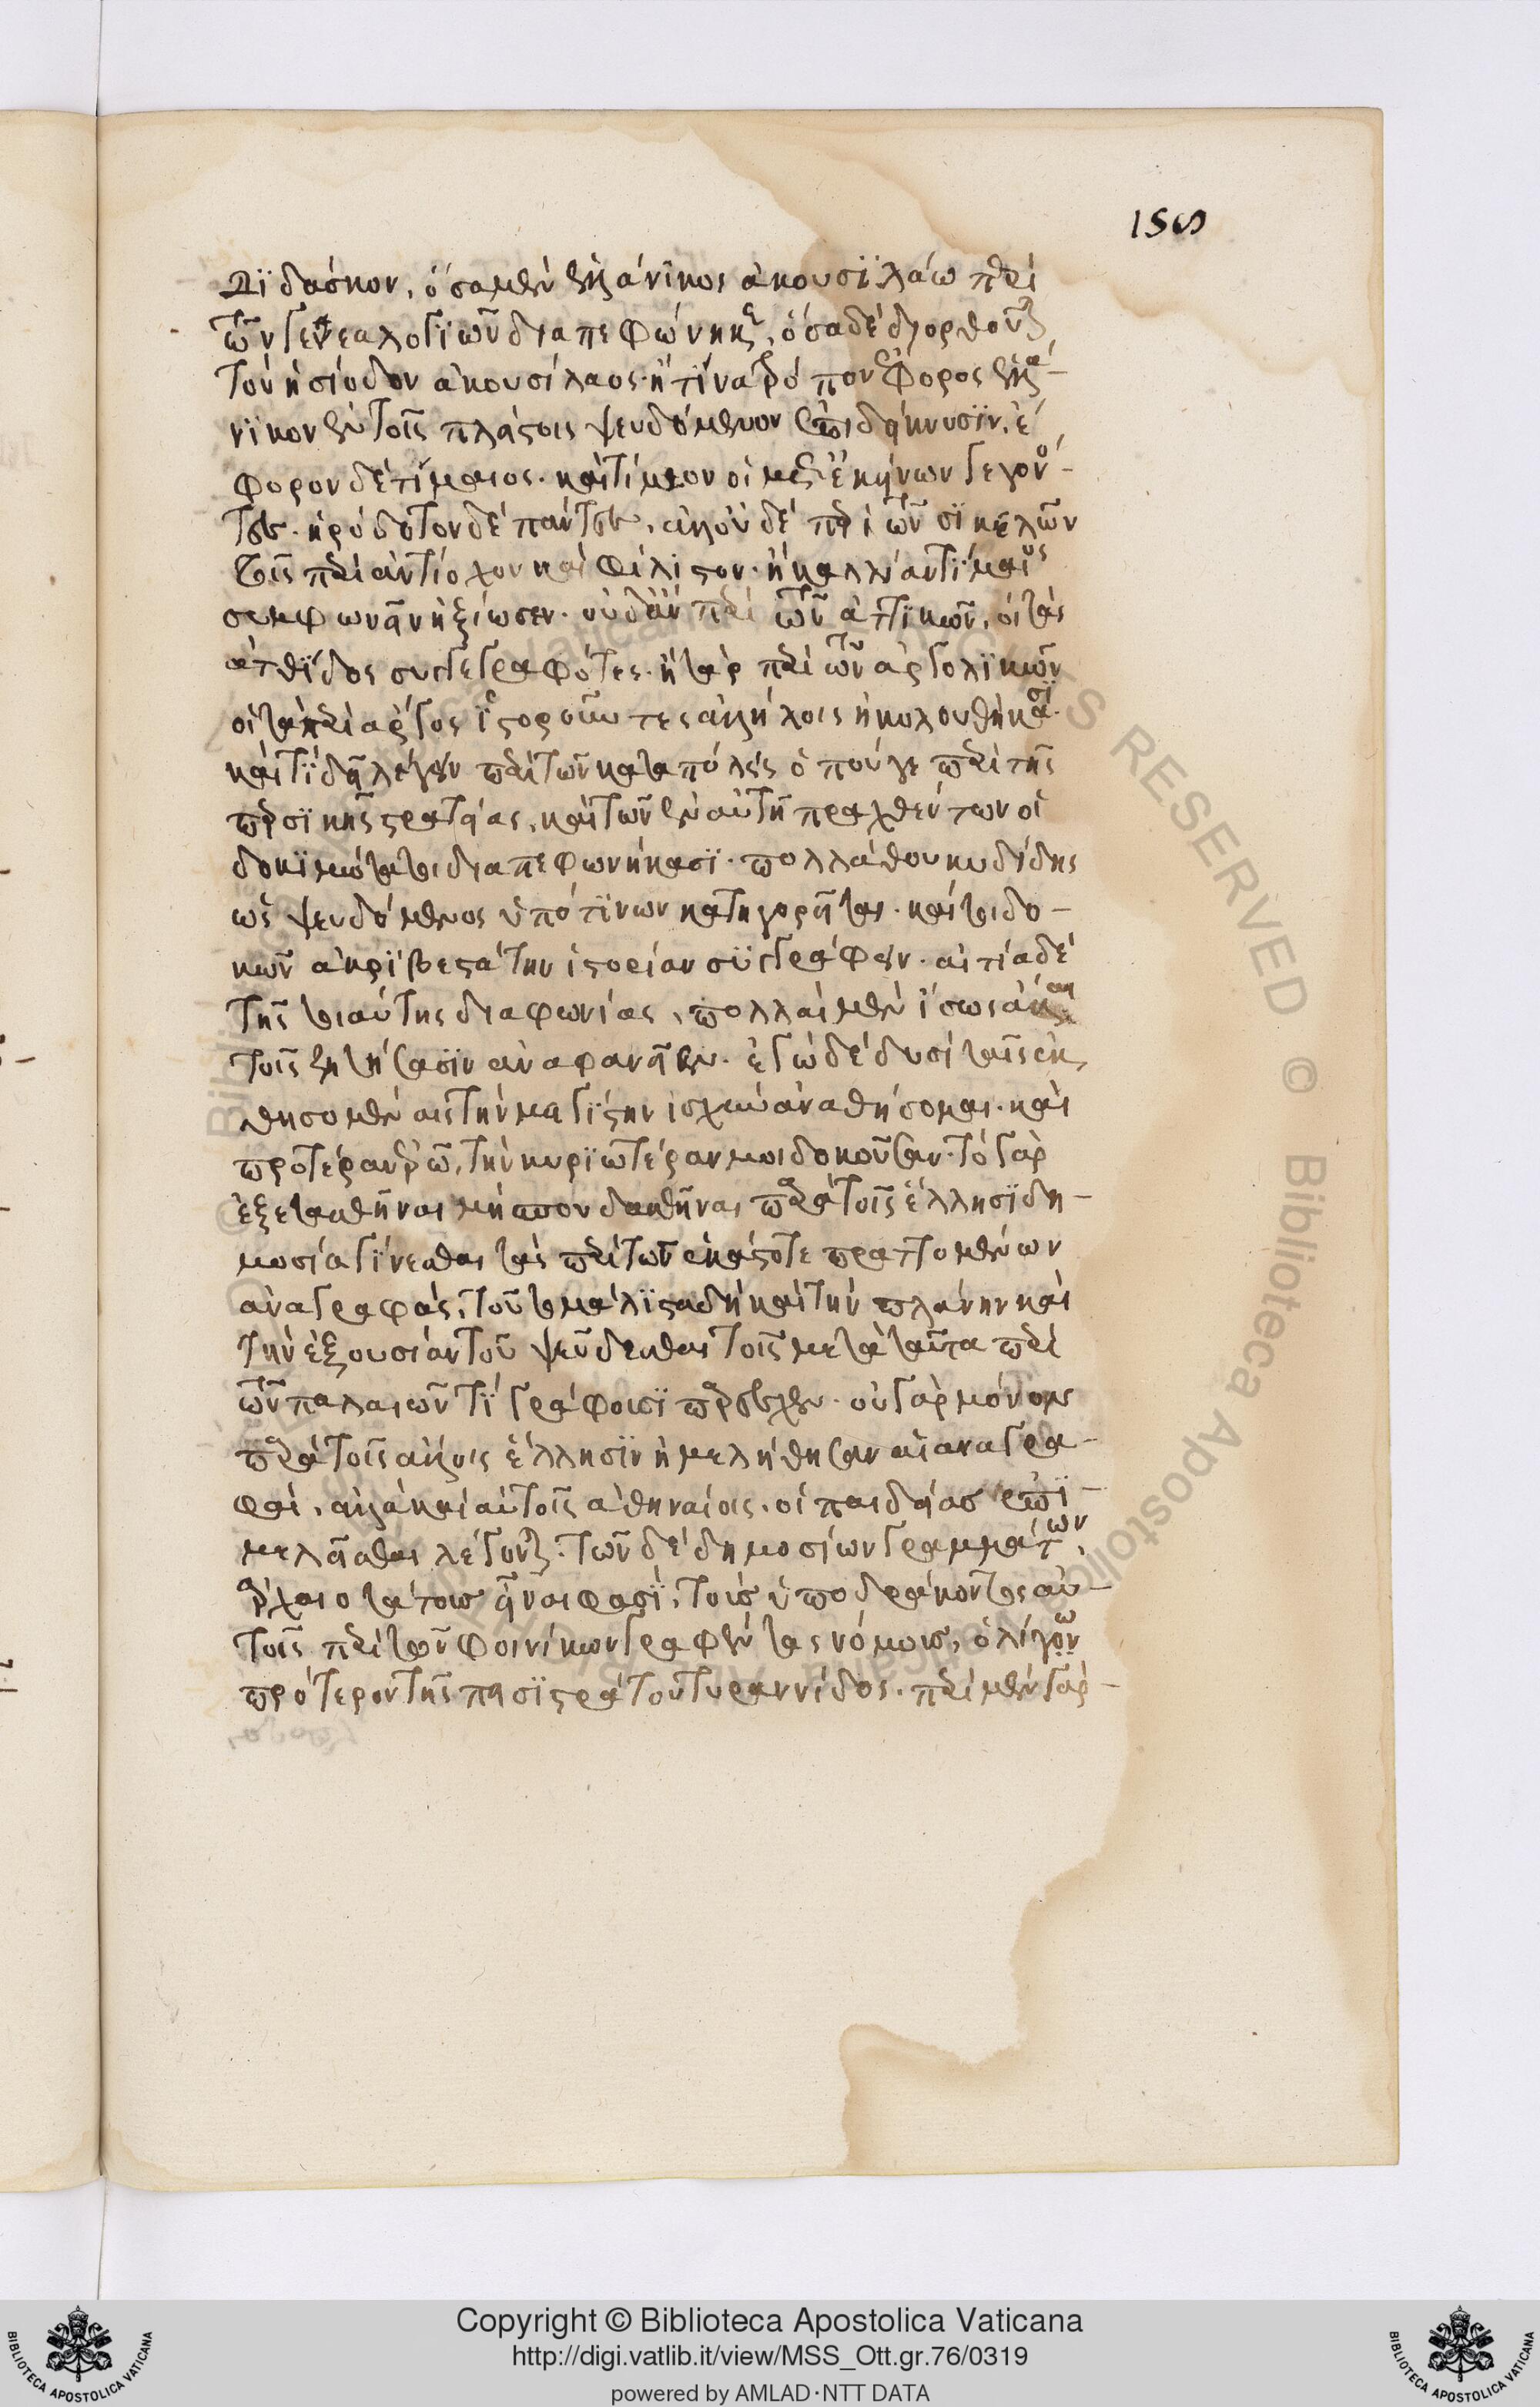 159
διδάσκον. ὅσα μὲν ἑλλάνικος ἀκουσϊλάω περὶ
τῶν γενεαλογϊῶν διαπεφώνηκε, ὅσα δὲ διορθοῦται
τὸν ἡσίοδον ἀκουσίλαος. ἢ τίνα τρόπον ἔφορος ἑλλά-
νϊκον ἐν τοῖς πλείστοις ψευδόμενον ἐπιδείκνυσϊν. ἔ-
φορον δὲ τίμαιος. καὶ τίμαιον οἱ μετ' ἐκείνων γεγονό-
τες. ἡρόδοτον δὲ πάντες. ἀλλ' οὐδὲ περὶ τῶν σϊκελῶν
τοῖς περὶ ἀντίοχον καὶ φίλιστον. ἢ καλλίαν τίμαιος
συμφωνεῖν ἠξίωσεν. οὐδ' ἂν περὶ τῶν ἀττϊκῶν, οἱ τὰς
ἀτθίδας συγγεγραφότες. ἢ γὰρ περὶ τῶν ἀργολϊκῶν
οἱ τὰ περὶ ἄργος ἱστοροῦντες ἀλλήλοις ἠκολουθήκασϊ.
καὶ τί δεῖ λέγειν περὶ τῶν κατα πόλεις ὅπου γε περὶ τῆς
περσϊκῆς στρατείας, καὶ τῶν ἐν αὐτῆ πραχθέντων οἱ
δοκϊμώτατοι διαπεφωνήκασϊ. πολλὰ θουκυδίδης
ὡς ψευδόμενος ὑπό τϊνων κατηγορεῖται. καίτοι δο-
κῶν ἀκρϊβέστατην ἱστορίαν συγγράφειν. αἰτία δὲ
τῆς τοιαύτης διαφωνίας, πολλαὶ μὲν ἴσως ἂν καὶ
τοῖς ζητήσασϊν ἀναφανεῖεν. ἐγὼ δὲ δυσὶ ταῖς ἐκ
θησομέναις τὴν μεγίστην ἰσχὺν ἀναθήσομαι. καὶ
προτέραν ἐρῶ, τὴν κυρϊωτέραν μοι δοκοῦσαν. τὸ γὰρ
ἐξετασθῆναι μὴ σπουδασθῆναι παρὰ τοῖς ἕλλησϊ δη-
μοσία γίνεσθαι τὰς περὶ τῶν ἑκάστοτε πραττομένων
ἀναγραφάς, τοῦτο μάλϊστα δὴ καὶ τὴν πλάνην καὶ
τὴν ἐξουσίαν τοῦ ψεῦδεσθαι τοῖς μετὰ ταῦτα περὶ
τῶν παλαιῶν τϊ γράφουσϊ παρέσχεν. οὐ γὰρ μόνον
παρὰ τοῖς ἄλλοις ἕλλησϊν ἠμελήθησαν αἱ αναγρα-
φαί, ἀλλὰ καὶ αὐτοῖς ἀθηναίοις. οἱ παιδείας ἐπϊ-
μελεῖσθαι λέγονται. τῶν δὲ δημοσίων γραμμάτων
ἀρχαιοτάτους εἶναι φασϊ, τοὺς ὑπο δράκοντος αὐ-
τοῖς περὶ τῶν φοινίκων γραφέντας νόμους, ὀλίγον
πρότερον τῆς πεισϊστράτου τυραννίδος. περὶ μὲν γὰρ
Copyright © Biblioteca Apostolica Vaticana
http://digi.vatlib.it/view/MSS_Ott.gr.76/0319
powered by AMLAD·NTT DATA